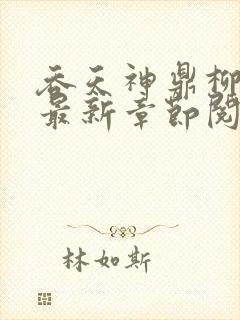 吞天神鼎柳
最新章節閱
林如斯